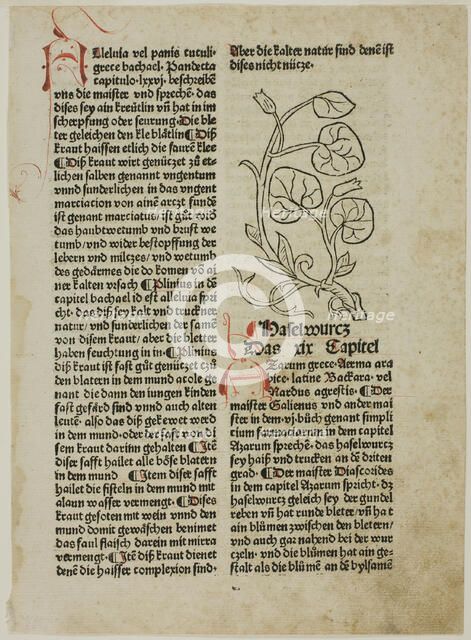 Alleluia vel panis cuculi·
grece bachael· Pandecta
capitulo·lxxvj· beschreibē
vns die maister vn̄ sprechē· das
dises sey ain kreütlin vn̄ hat in im
scherpfung oder seurung· Die ble
ter geleichen den kle blätlin ¶Diß
kraut haissen etlich die saurē klee
¶Diß kraut wirt genützet zů et⸗
lichen salben genannt vngentum
vnnd sunderlichen in das vngent
marciaton von ainē arczt fundē
ist genant marciatus ist gůt wið
das haubtwetumb vnd brust we
tumb/ vnd wider bestopffung der
lebern vnd milczes/ vnd wetumb
des gedärmes die do komen vō ai
ner kalten vrsach ¶Plinius in dē
capitel bachael id est alleluia spri
cht· das diß sey kalt vnd truckner
natur/ vnd sunderlichen der samē
von disem kraut/ aber die bletter
haben feuchtung in in· ¶Plinius
diß kraut ist fast gůt genützet czů
den blatern in dem mund acole ge
nant die dann den iungen kinden
fast gefärd sind vnnd auch alten
leutē/ also das diß gekewet werd
in dem mund· oder der saft vō di
sem kraut darinn gehalten ¶Itē
diser safft hailet alle böse blatern
in dem mund ¶Item diser safft
hailet die fisteln in dem mund mit
alaun wasser vermengt· ¶Dises
kraut gesoten mit wein vnnd den
mund domit gewäschen benimet
das faul flaisch darein mit mirra
vermengt· ¶Itē diß kraut dienet
denē die haisser complexion sind·
Aber die kalter natur sind denē ist
dises nicht nütze·
¶Haselwurcz
Das xix Capitel
Azarum grece· Aerma ara
bice· latine Backara· vel
Nardus agrestis· ¶Der
maister Galienus vnd ander mai
ster in dem·vj·bůch genant simpli
cium farmacarum in dem capitel
Azarum sprechē· das haselwurcz
sey haiß vnd trucken an dē driten
grad· ¶Der maister Diascorides
in dem capitel Azarum spricht· dz
haselwurcz geleich sey der gundel
reben vn̄ hat runde bleter/ vn̄ hat
ain blůmen zwischen den bletern/
vnd auch gaz nahend bei der wur
czeln· vnd die blůmen hat ain ge⸗
stalt als die blůmē an dē bylsamē
heritage
heritage
heritage
heritage